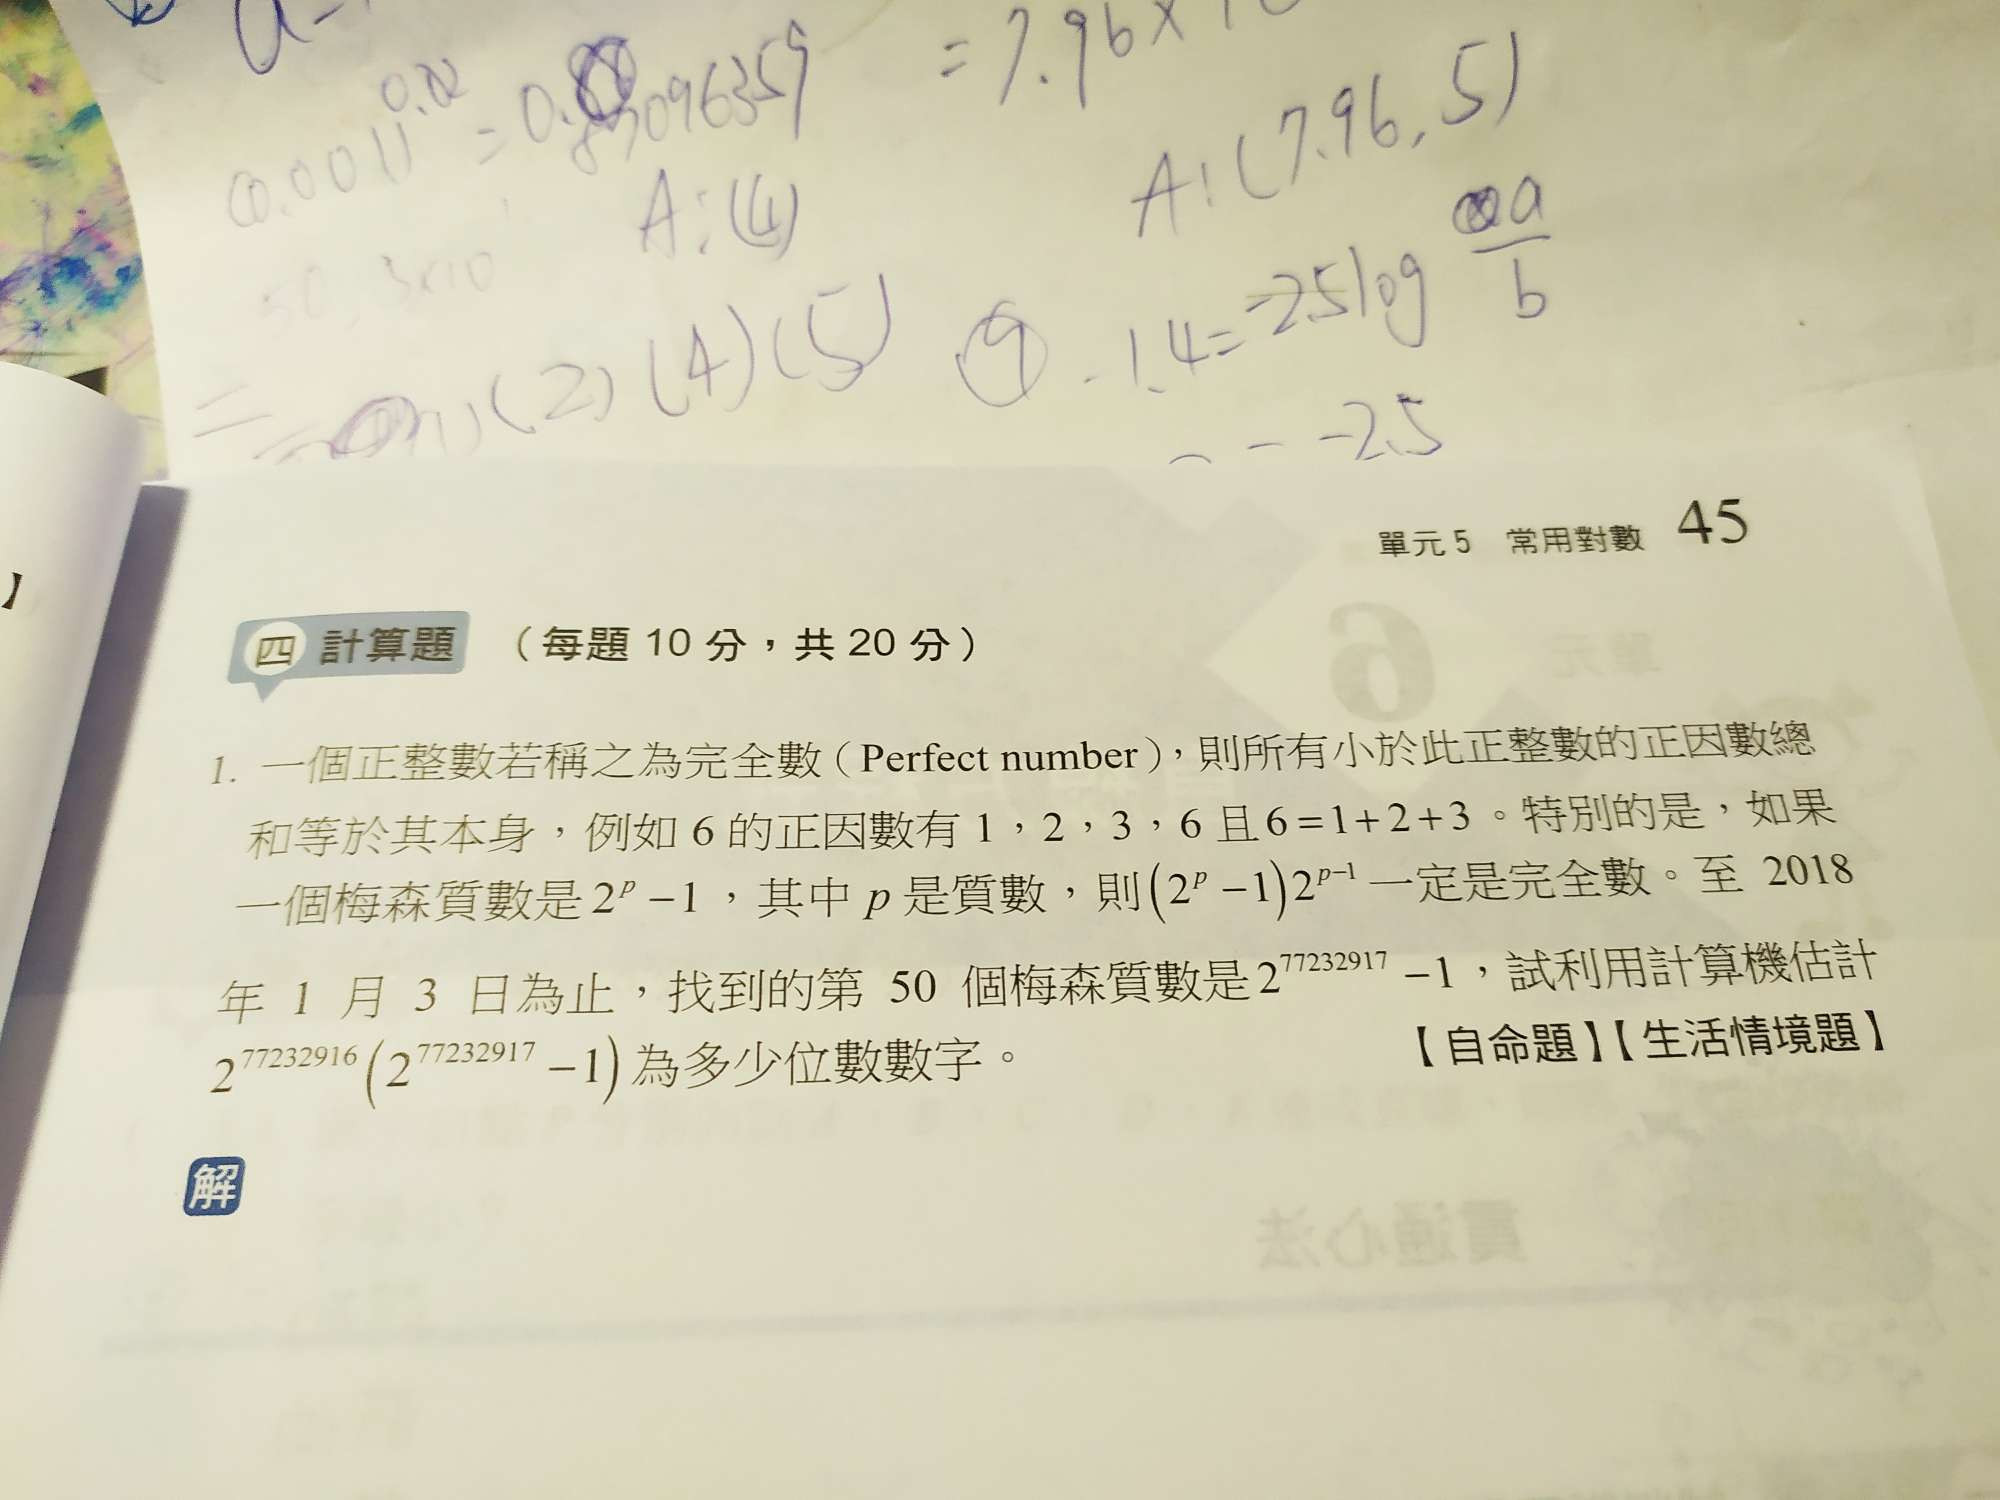 = 7.96×10
(0.001)^0.02 = 0.87096359
A:(4)
A:(7.96,5)
(2)(4)(5)
⑨ -1.4=-2.5log a/b
-2.5
單元5 常用對數 45
四 計算題 (每題 10 分,共 20 分)
1. 一個正整數若稱之為完全數(Perfect number),則所有小於此正整數的正因數總
和等於其本身,例如 6 的正因數有 1,2,3,6 且 6=1+2+3。特別的是,如果
一個梅森質數是 2^p −1,其中 p 是質數,則 (2^p −1)2^{p−1} 一定是完全數。至 2018
年 1 月 3 日為止,找到的第 50 個梅森質數是 2^77232917 −1,試利用計算機估計
2^77232916 (2^77232917 −1) 為多少位數數字。 【自命題】【生活情境題】
解